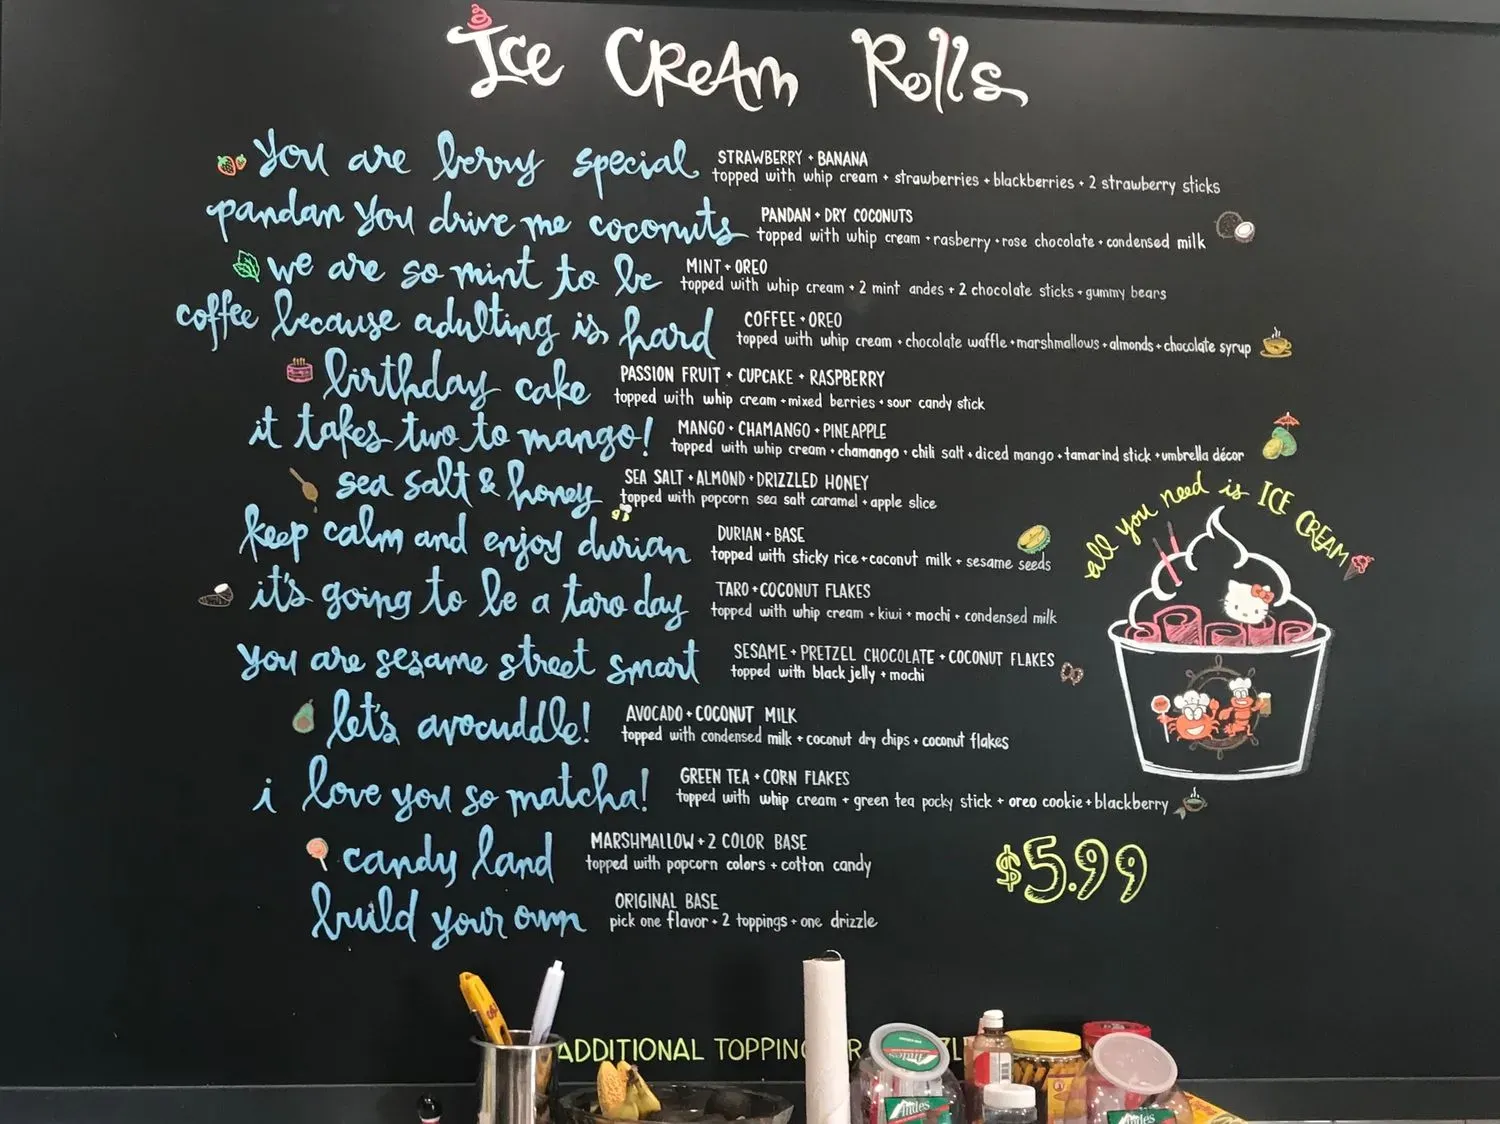 Ice Cream Rolls
you are berry special
STRAWBERRY + BANANA
topped with whip cream + strawberries + blackberries + 2 strawberry sticks
pandan you drive me coconuts
PANDAN + DRY COCONUTS
topped with whip cream + rasberry + rose chocolate + condensed milk
we are so mint to be
MINT + OREO
topped with whip cream + 2 mint andes + 2 chocolate sticks + gummy bears
coffee because adulting is hard
COFFEE + OREO
topped with whip cream + chocolate waffle + marshmallows + almonds + chocolate syrup
birthday cake
PASSION FRUIT + CUPCAKE + RASPBERRY
topped with whip cream + mixed berries + sour candy stick
it takes two to mango!
MANGO + CHAMANGO + PINEAPPLE
topped with whip cream + chamango + chili salt + diced mango + tamarind stick + umbrella décor
sea salt & honey
SEA SALT + ALMOND + DRIZZLED HONEY
topped with popcorn sea salt caramel + apple slice
keep calm and enjoy durian
DURIAN + BASE
topped with sticky rice + coconut milk + sesame seeds
it's going to be a taro day
TARO + COCONUT FLAKES
topped with whip cream + kiwi + mochi + condensed milk
you are sesame street smart
SESAME + PRETZEL CHOCOLATE + COCONUT FLAKES
topped with black jelly + mochi
let's avocuddle!
AVOCADO + COCONUT MILK
topped with condensed milk + coconut dry chips + coconut flakes
i love you so matcha!
GREEN TEA + CORN FLAKES
topped with whip cream + green tea pocky stick + oreo cookie + blackberry
candy land
MARSHMALLOW + 2 COLOR BASE
topped with popcorn colors + cotton candy
build your own
ORIGINAL BASE
pick one flavor + 2 toppings + one drizzle
all you need is ICE CREAM
$5.99
ADDITIONAL
Andes
Andes